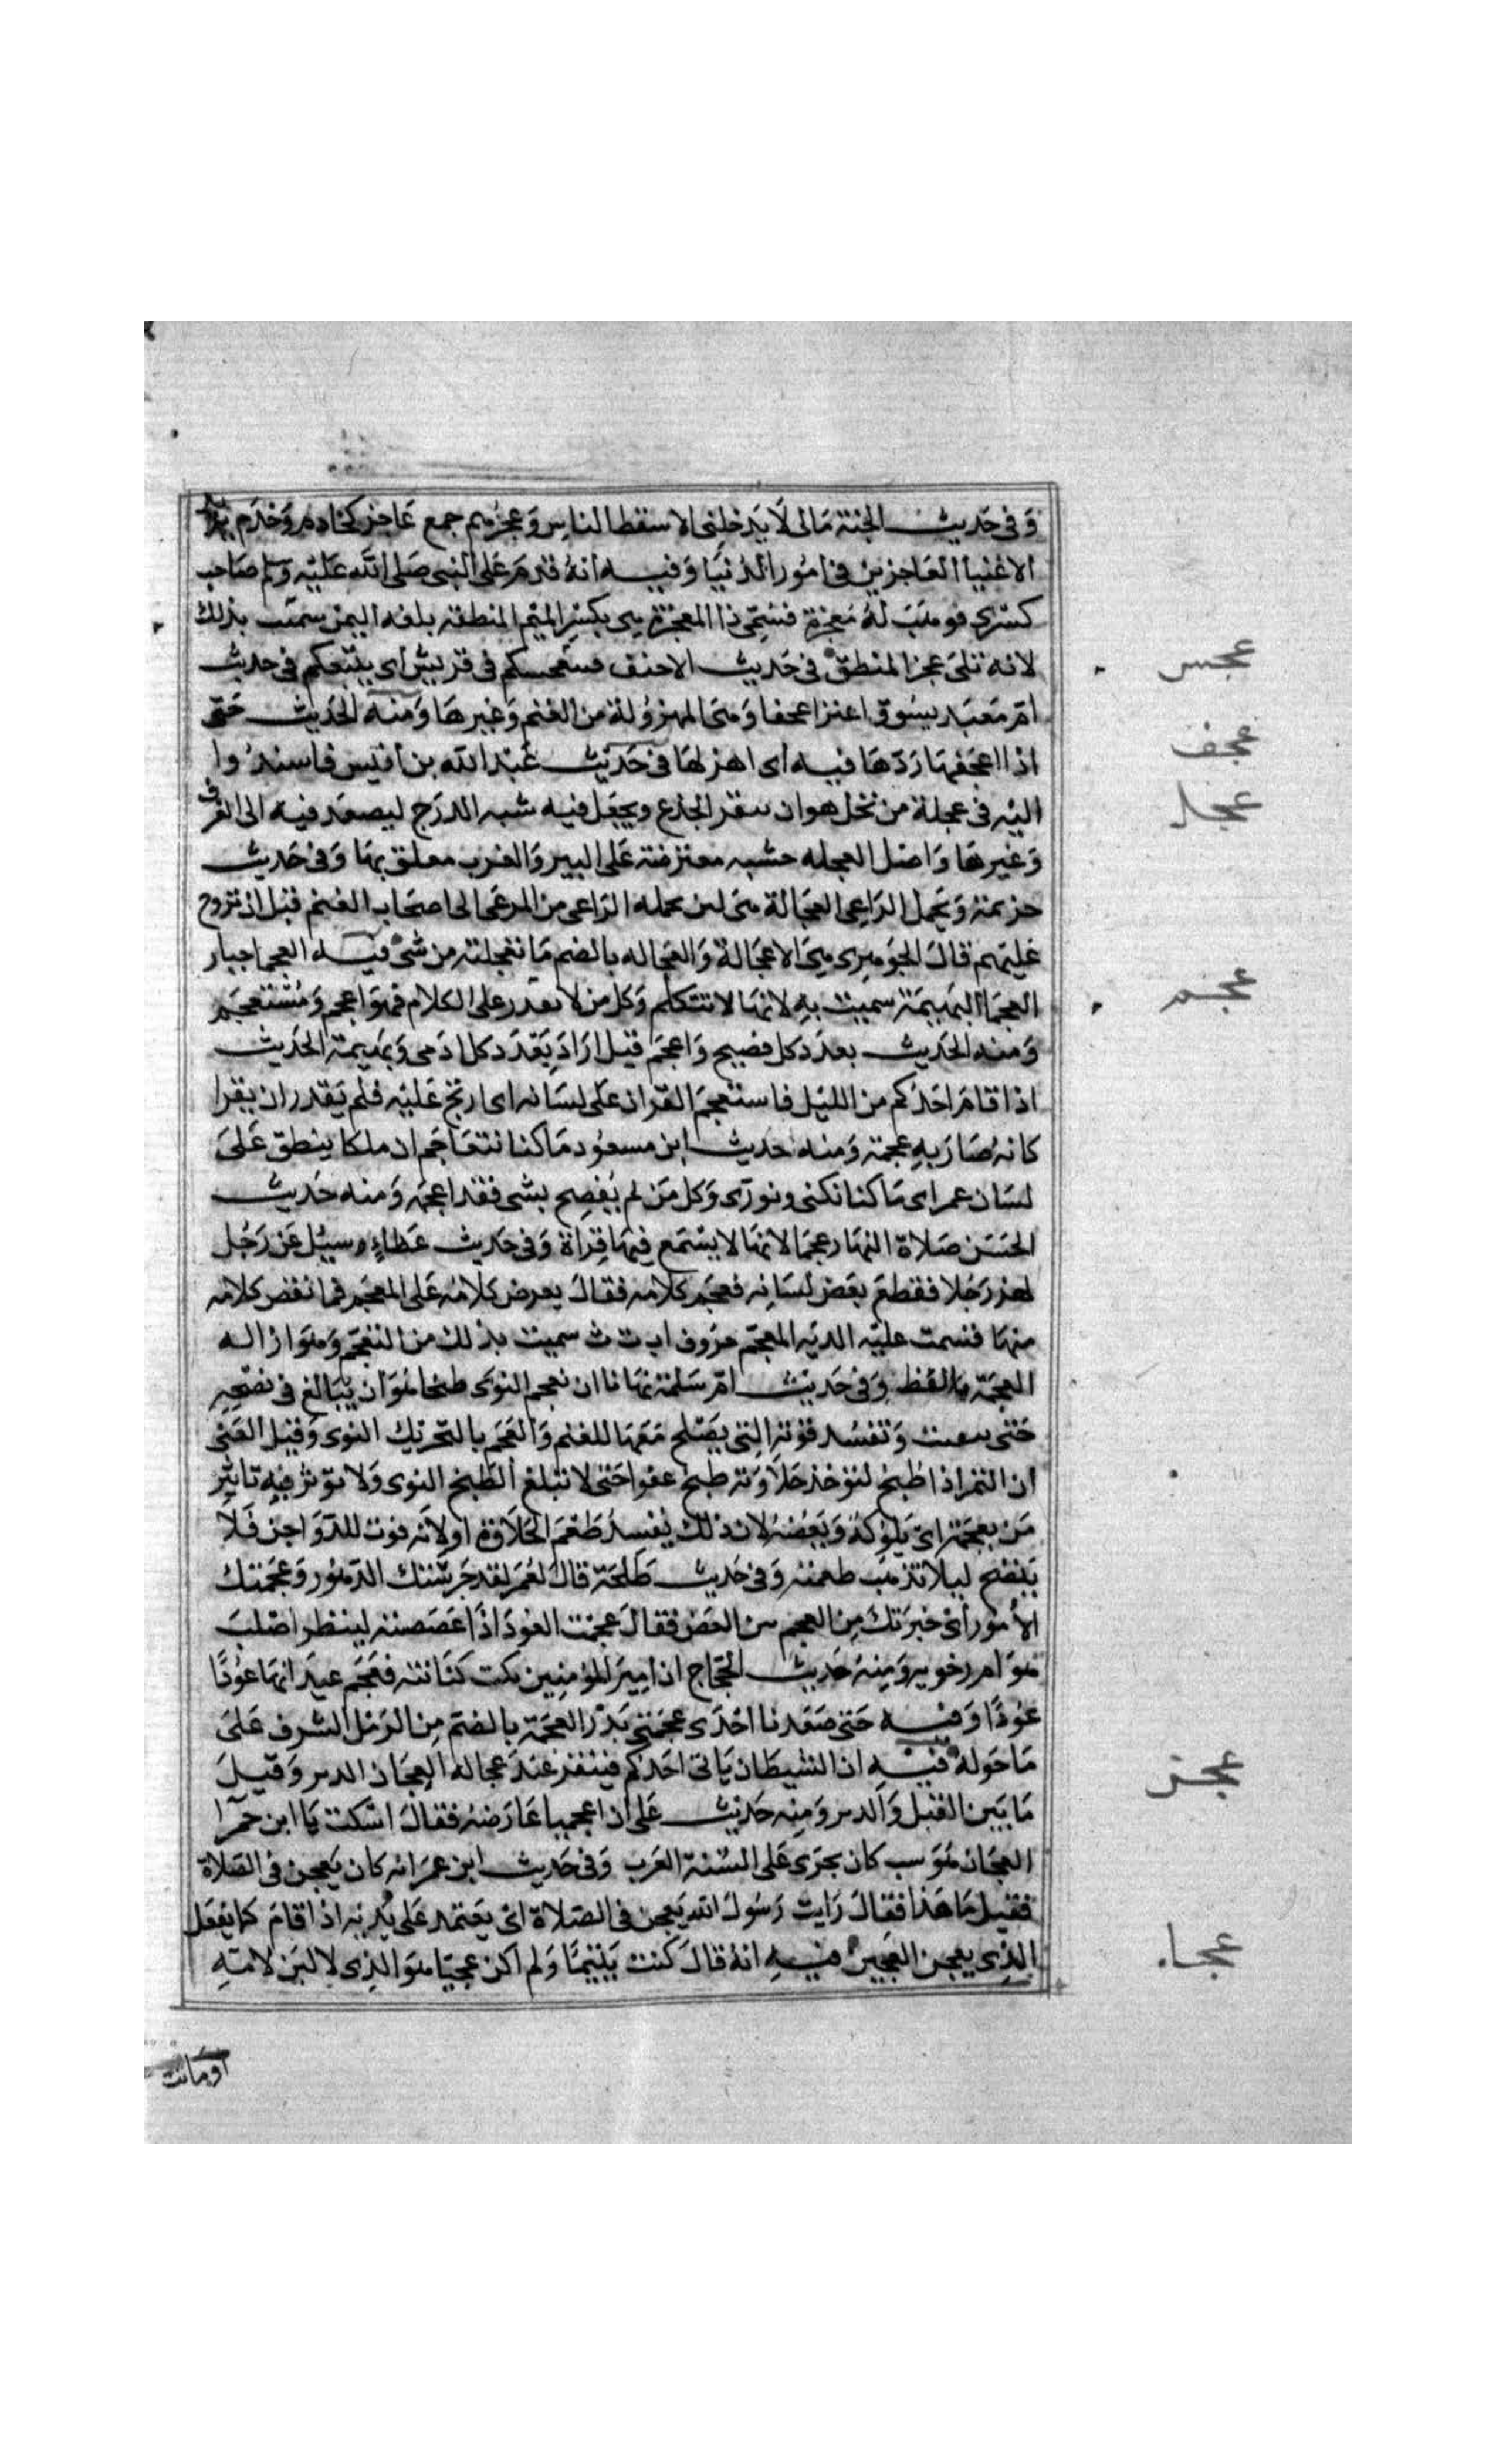 وَفى حَديث الجنة مَالى لَا يَدخلنى الا سقط الناسِ وَعجزهم جمع عَاجز كخادم وَخدَم يريد
الاغنيا العَاجزين فى امُور الدُنيَا وَفيه انهُ قدمَ عَلى النبى صَلى الله عَليْه وَسلم صَاحب
كسْرى فوهَبَ لهُ مَعجزة فسُمى ذا المعجزة هى بكسْر الميم المنطقه بلغه اليمن سمت بذلك
لانه تلى عجز المنطق فى حَديث الاحنف فسعجسكم فى قريش أى يتبعكم فى حديث
امّ مَعبَد يسُوق اعنزا عجفا وَهى المهزوُلة من الغنم وَغيرهَا وَمنه الحَديث حَتى
اذا اعجَفهَا رَدّهَا فيه اى اهزلهَا فى حَديث عَبْد الله بن أنيس فاسندُوا
اليْه فى عجلة من نخل هو ان ينقر الجذع ويجعَل فيه شبه الدرَج ليصعَد فيه الى الغرف
وَغيرهَا وَاصْل العجله خشبه معترضة عَلى البير وَالغرب معلق بهَا وَفى حَديث
خزيمة وَيحمل الرَاعى العجَالة هى لبن يحمله الرَاعى من المرعَى الى اصحَاب الغنم قبل ان تروح
عَليهم قالَ الجوهرى هىَ الاعجَالة وَالعجَاله بالضم مَا تعجلته من شىء فيه العجما جبار
العجَما البَهيمَة سميت به لانهَا لا تتكلم وَكل من لا يقدر على الكلام فهوَ اعجم وَمُستعجم
وَمنه الحَديث بعدَد كل فصيح وَاعجمَ قيل ارَادَ بعَدَد كل ادَمى وَبَهيمة الحَديث
اذا قامَ احَدكم من الليْل فاستعجمَ القران عَلى لسَانه اى ارتج عَليْه فلم يَقدر ان يقرا
كانه صَارَ به عجمَة وَمنه حَديث ابن مسعُود مَا كنا نتعَاجَم ان ملكا ينطق عَلى
لسَان عمر اى مَا كنا نكنى ونورّى وَكل مَن لم يُفصِح بشى فقد اعجمه وَمنه حَديث
الحَسَن صَلاة النهَار عجمَا لانهَا لا يسْتمع فيها قِرَاة وَفى حَديث عَطاءٍ وسيُل عَن رَجُل
لهز رَجُلا فقطعَ بعَض لسَانه فعجَم كلامه فقالَ يعرض كلَامُه عَلى المعجَم فما نقص كلامه
منهَا قسمت عليْه الديَه المعجَم حرَوف ا ب ت ث سميت بذلك من التعجَم وَهوَ ازاله
العجمَة بالنقط وَفى حَديث امّ سَلمة نهَانا ان نعجم النوَى طبخا هُوَ ان يُبَالغ فى نضجه
حَتى يتفتت وَتفسُد قوّته التى يصَلح مَعَهَا للغنم وَالعَجَم بالتحَريك النوى وَقيل المعنى
ان التمر اذا طبخ لتوخذ حَلَاوَته طبخ عفوا حَتى لا تبلغ الطبخ النوى وَلا توثر فيه تاثير
مَن يعجمَه اى يَلوكهُ وَيَعَضهُ لان ذلك يُفسِدُ طَعمَ الحَلَاوة او لانه قوت للدّوَاجن فَلَا
ينضج ليلا تذهَب طعمته وَفى حَديث طَلحَة قالَ لعُمَر لقد جَرسَتك الدّهوُر وَعجمَتك
الأمور أى خبرَتك مِن العجم من العَض فقالَ عجمت العُودَ اذا عَضَضته لينظر اصْلبَ
هوَ ام رخو وَمِنه حَديث الحجاج ان اميرَ المؤمِنين نكت كنَانته فعَجَم عيدَانهَا عُودًا
عُودًا وَفيه حَتى صَعَدنا احْدَى عجمَتى بَدْر العجمَة بالضم مِن الرَمْل المشرف عَلى
مَا حَوله فيْه ان الشيطَان يَاتى احَدكم فينقر عندَ عجانه العِجَان الدبر وَقيلَ
مَا بَين القبل وَالدبر وَمِنه حَديث عَلى ان اعجميا عَارَضه فقالَ اسْكت يَا ابن حمرَا
العجَان هُوَ سب كان يجرَى عَلى السْنة العَرب وَفى حَديث ابن عمرَ انه كان يَعجن فى الصَلاة
فقيل مَا هَذا فقالَ رَايت رَسُولَ الله يَعجن فى الصَلاة اى يعَتمد عَلى يَدَيه اذا قامَ كما يفعَل
الذِى يعجن العَجين فيه انهُ قالَ كنت يَتيمَا وَلم أكن عجيّا هوَ الذِى لا لبَن لامّهِ
اومَاتت
عجس
عجف
عجل
عجم
عجن
عجا